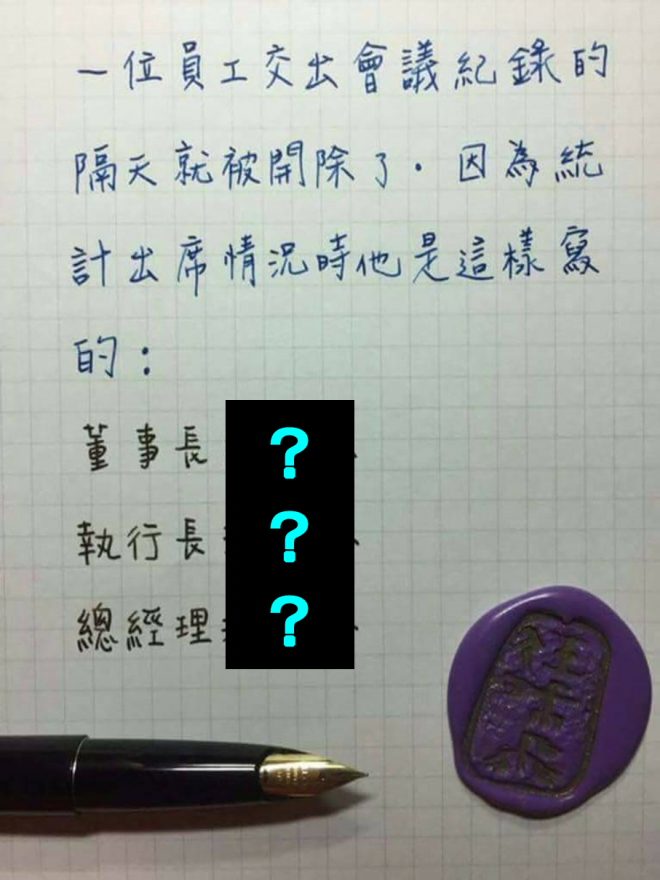 一位員工交出會議紀錄的
隔天就被開除了.因為統
計出席情況時他是這樣寫
的:
董事長 ?
執行長 ?
總經理 ?